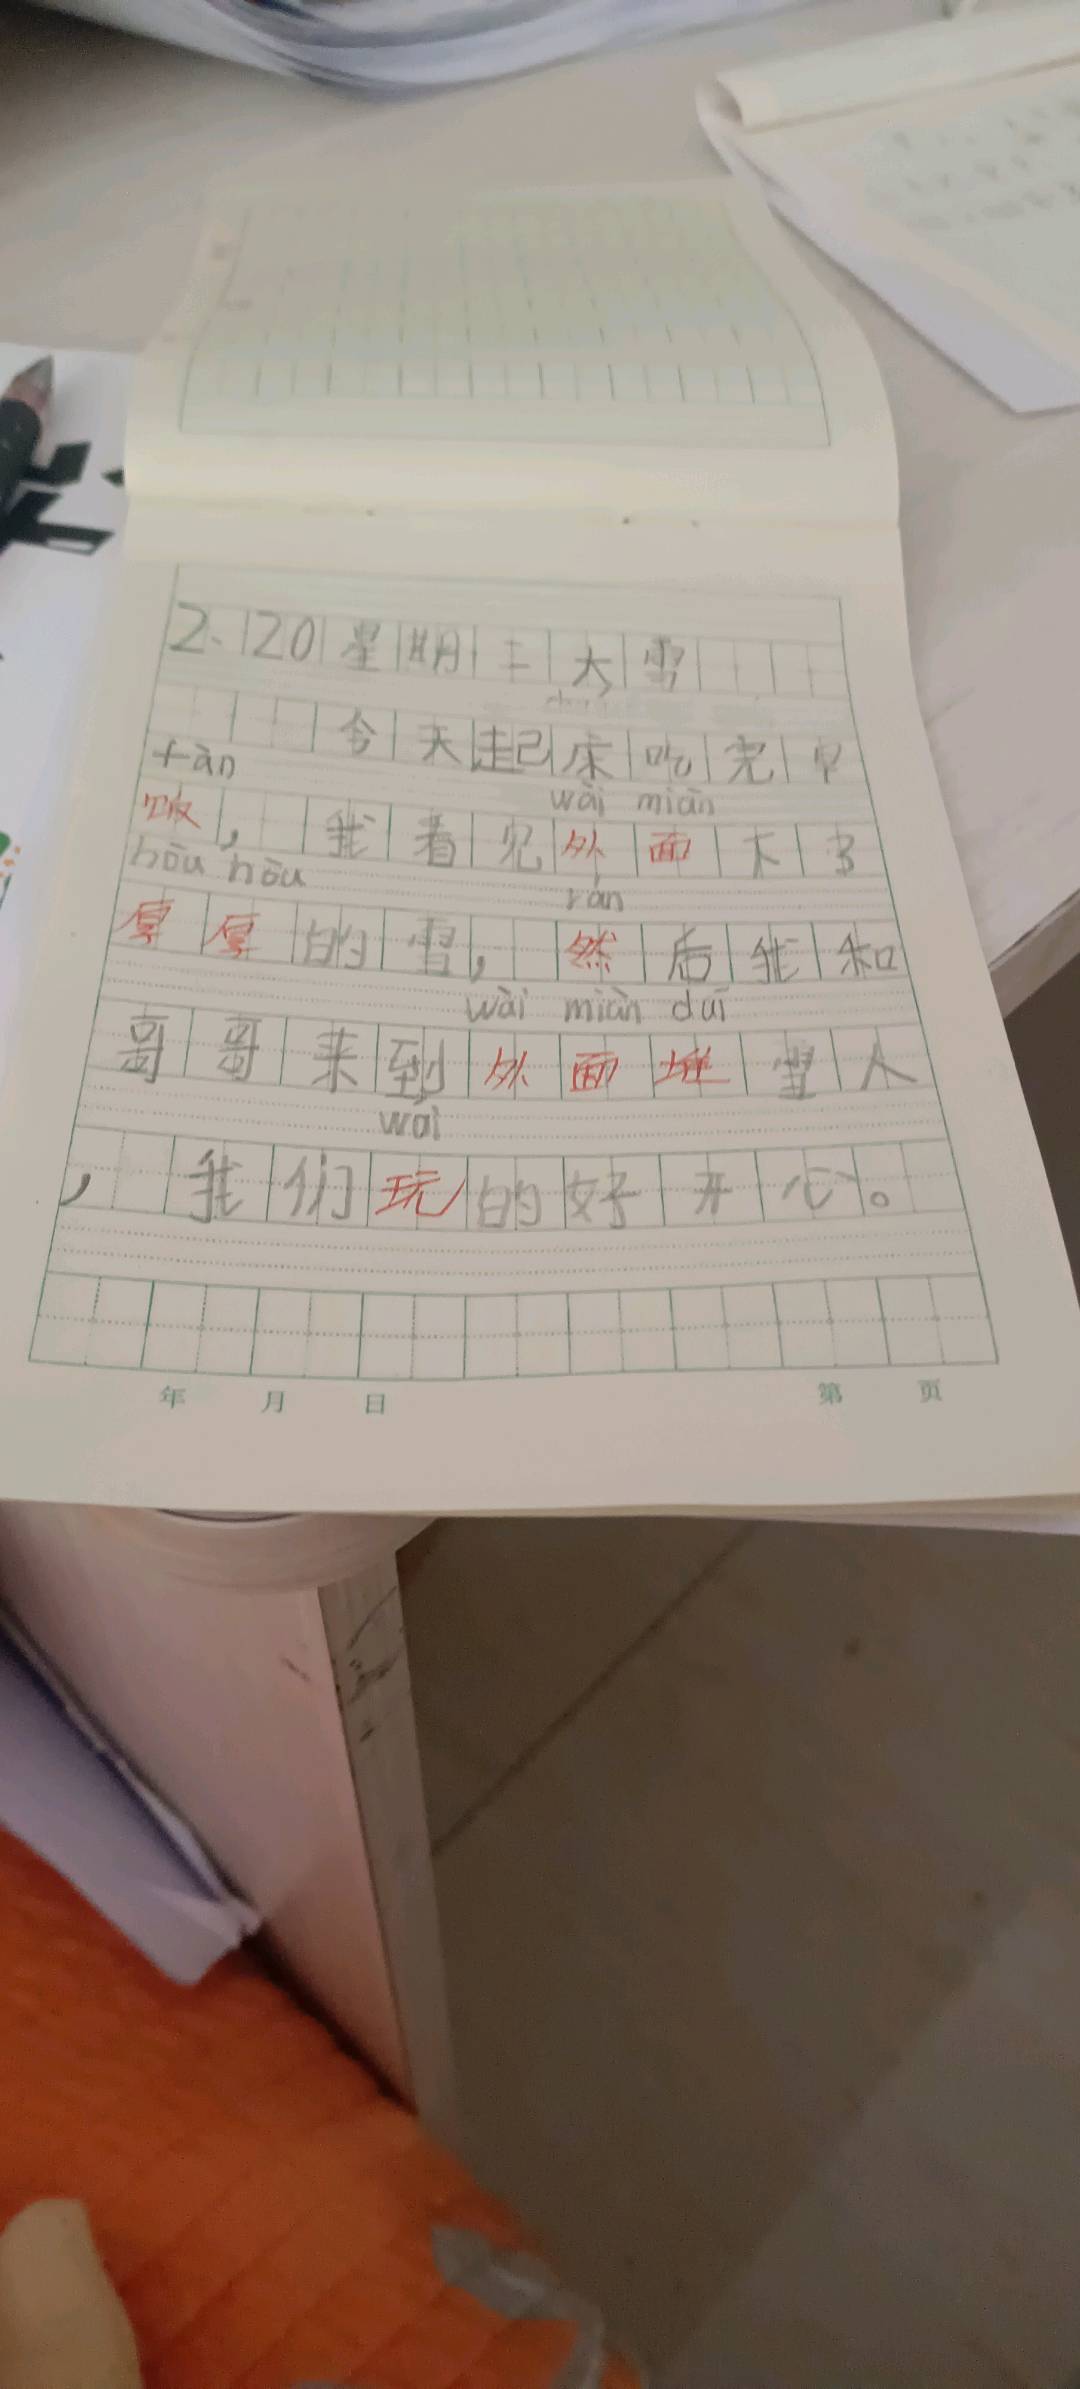 2、20 星期二 大雪
今天起床吃完早
fàn
饭，我看见外面下了
wài miàn
hòu hòu
厚厚的雪，然后我和
rán
哥哥来到外面堆雪人
wài miàn duī
，我们玩的好开心。
wái
年 月 日 第 页